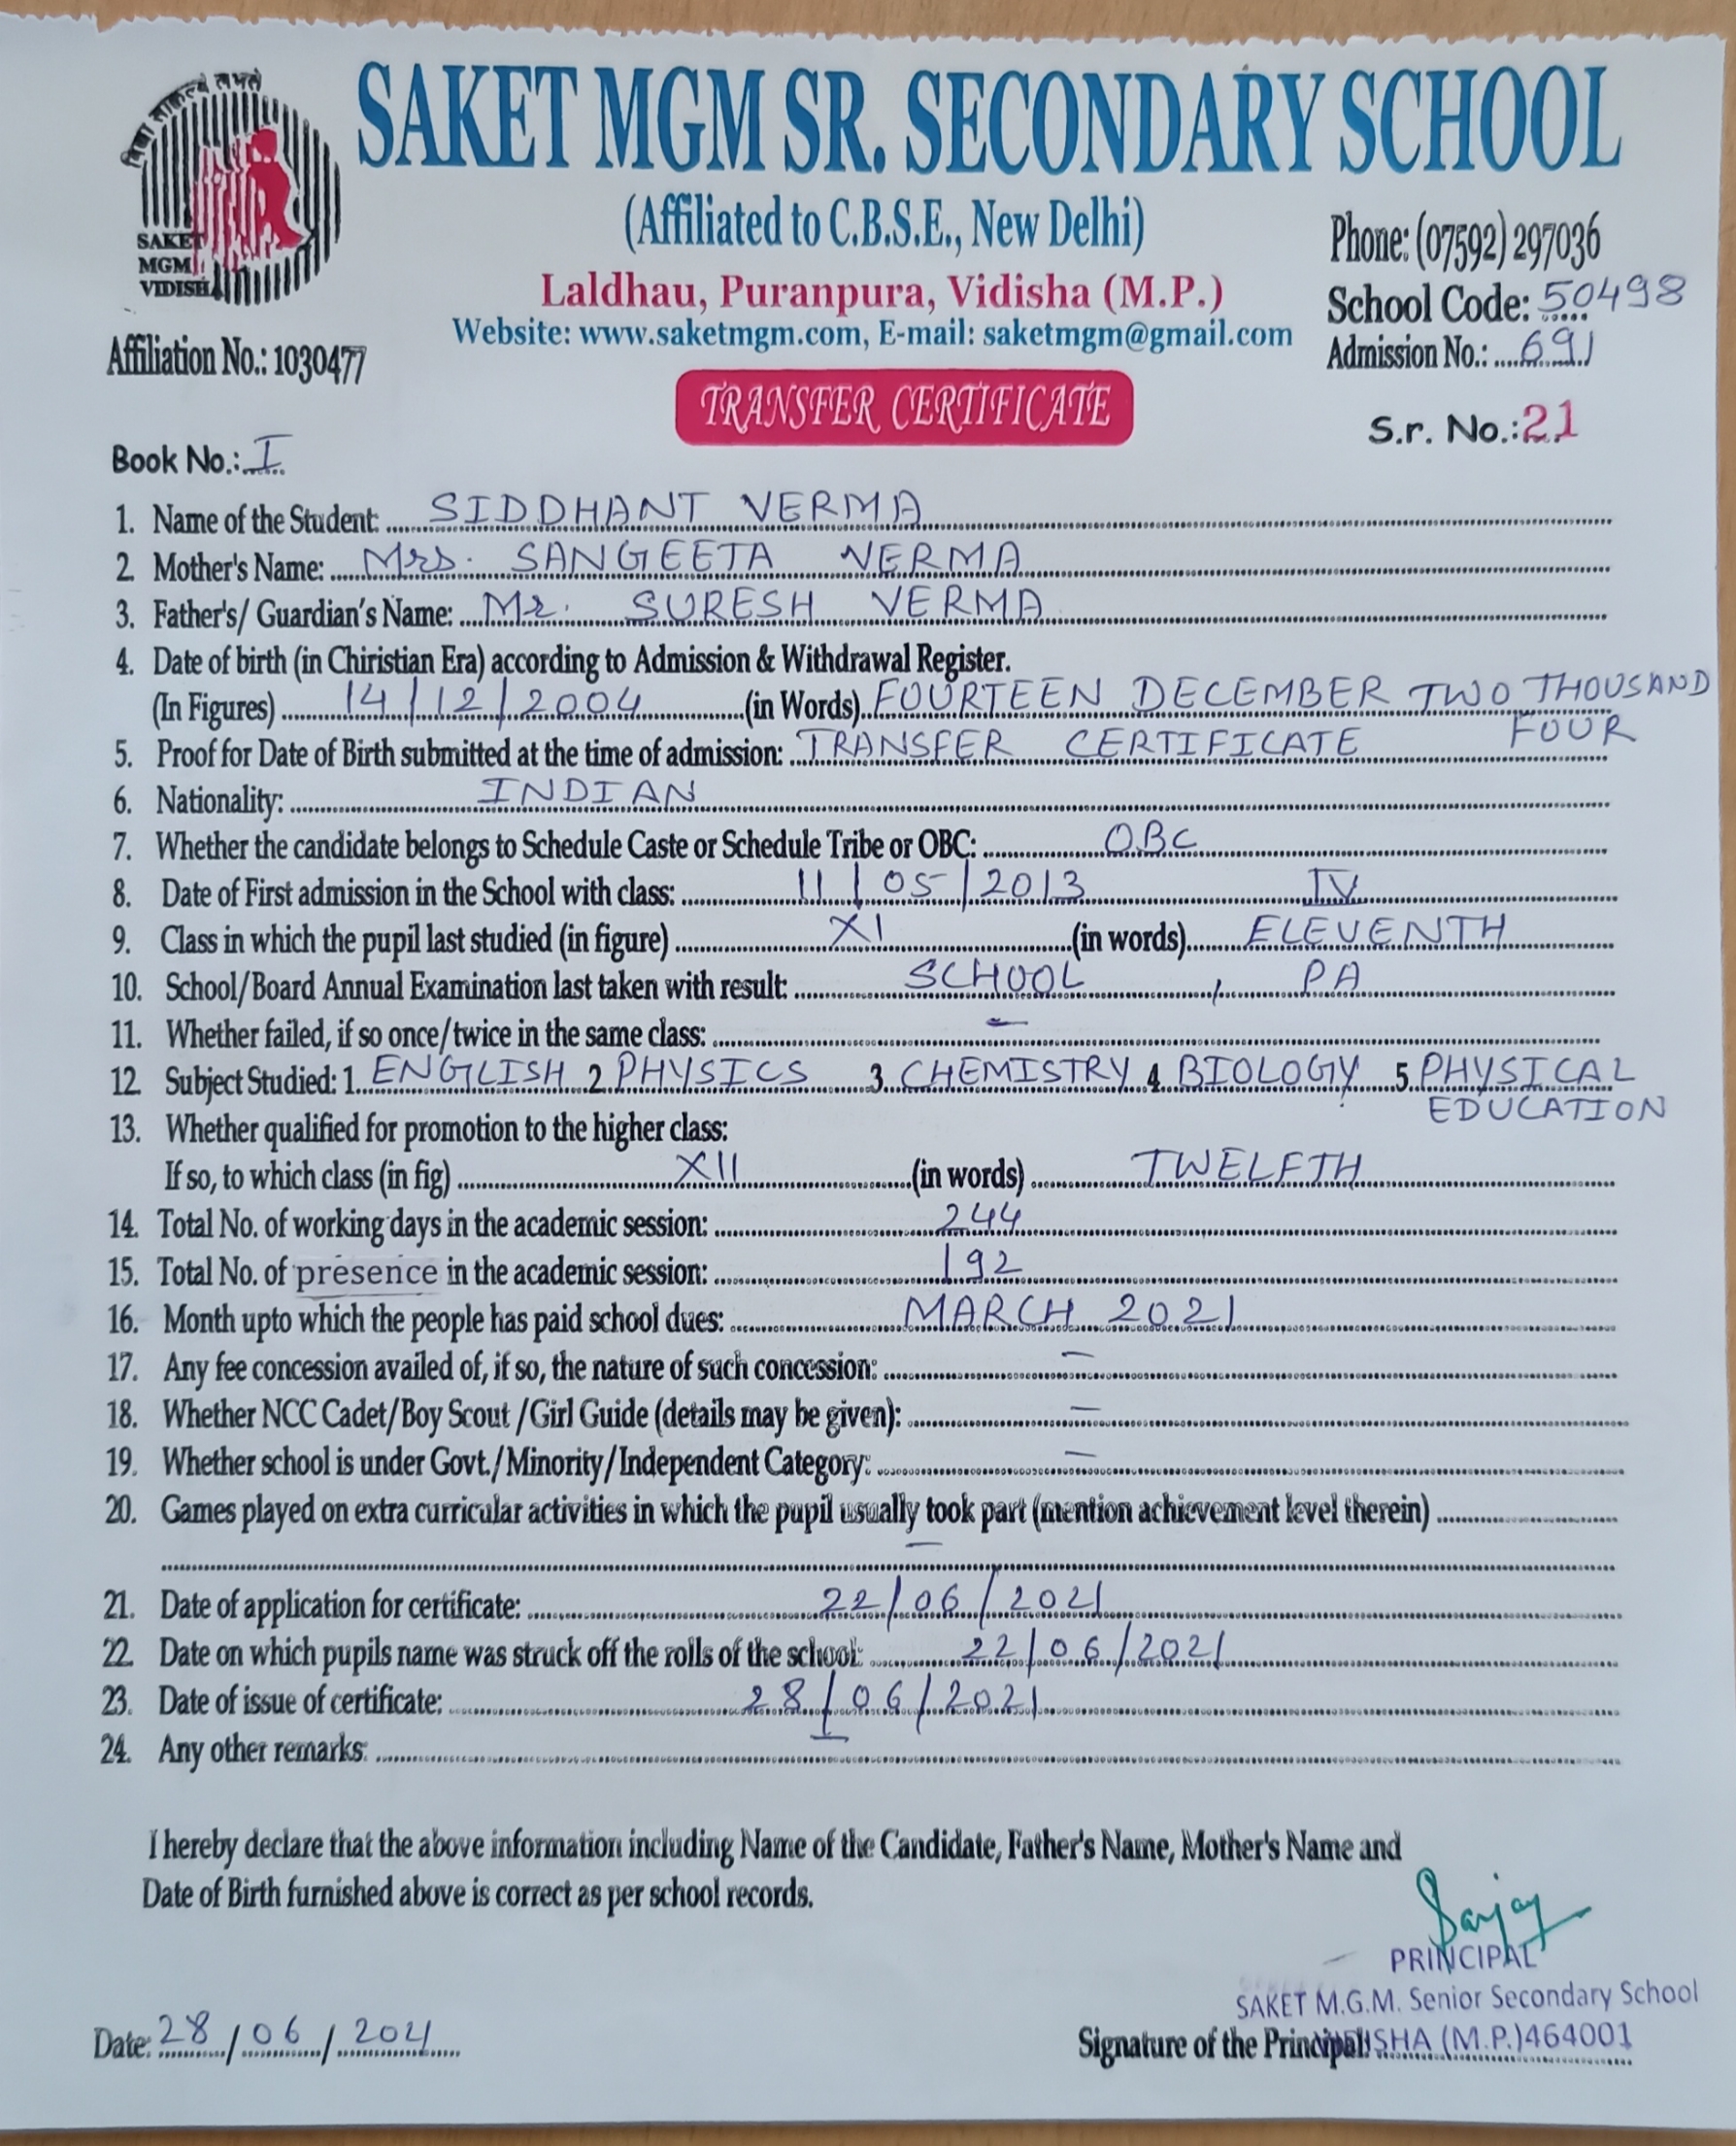 विद्या साकल्ये लभते
SAKET
MGM
VIDISHA
SAKET MGM SR. SECONDARY SCHOOL
(Affiliated to C.B.S.E., New Delhi)
Laldhau, Puranpura, Vidisha (M.P.)
Website: www.saketmgm.com, E-mail: saketmgm@gmail.com
Phone: (07592) 297036
School Code: 50498
Admission No.: 691
Affiliation No.: 1030477
TRANSFER CERTIFICATE
S.r. No.:21
Book No.: I
1. Name of the Student: SIDDHANT VERMA
2. Mother's Name: Mrs. SANGEETA VERMA
3. Father's/ Guardian's Name: Mr. SURESH VERMA
4. Date of birth (in Chiristian Era) according to Admission & Withdrawal Register.
(In Figures) 14/12/2004 (in Words) FOURTEEN DECEMBER TWO THOUSAND
FOUR
5. Proof for Date of Birth submitted at the time of admission: TRANSFER CERTIFICATE
6. Nationality: INDIAN
7. Whether the candidate belongs to Schedule Caste or Schedule Tribe or OBC: OBC
8. Date of First admission in the School with class: 11/05/2013 IV
9. Class in which the pupil last studied (in figure) XI (in words) ELEVENTH
10. School/Board Annual Examination last taken with result: SCHOOL , PA
11. Whether failed, if so once/twice in the same class: —
12. Subject Studied: 1. ENGLISH 2 PHYSICS 3. CHEMISTRY 4. BIOLOGY 5. PHYSICAL
EDUCATION
13. Whether qualified for promotion to the higher class:
If so, to which class (in fig) XII (in words) TWELFTH
14. Total No. of working days in the academic session: 244
15. Total No. of presence in the academic session: 192
16. Month upto which the people has paid school dues: MARCH 2021
17. Any fee concession availed of, if so, the nature of such concession: —
18. Whether NCC Cadet/Boy Scout /Girl Guide (details may be given): —
19. Whether school is under Govt./Minority/Independent Category: —
20. Games played on extra curricular activities in which the pupil usually took part (mention achievement level therein)
—
21. Date of application for certificate: 22/06/2021
22. Date on which pupils name was struck off the rolls of the school: 22/06/2021
23. Date of issue of certificate: 28/06/2021
24. Any other remarks: —
I hereby declare that the above information including Name of the Candidate, Father's Name, Mother's Name and
Date of Birth furnished above is correct as per school records.
Sanjay
PRINCIPAL
SAKET M.G.M. Senior Secondary School
VIDISHA (M.P.)464001
Signature of the Principal:
Date: 28/06/2021